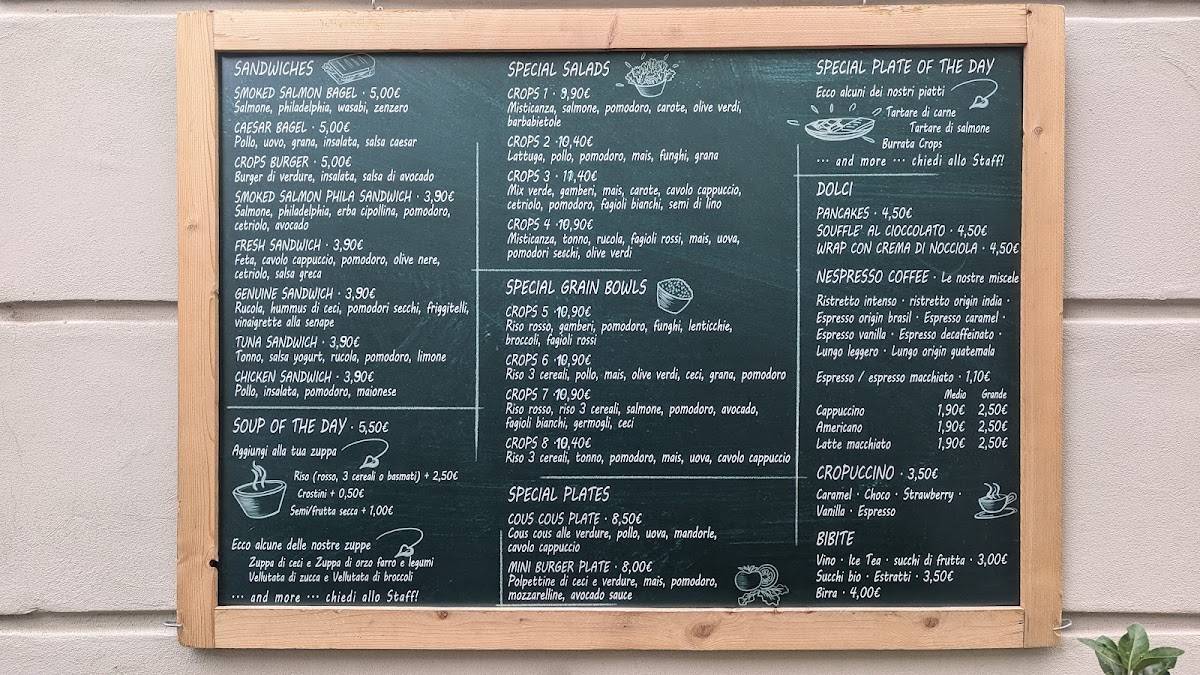 SANDWICHES
SMOKED SALMON BAGEL · 5,00€
Salmone, philadelphia, wasabi, zenzero
CAESAR BAGEL · 5,00€
Pollo, uovo, grana, insalata, salsa caesar
CROPS BURGER · 5,00€
Burger di verdure, insalata, salsa di avocado
SMOKED SALMON PHILA SANDWICH · 3,90€
Salmone, philadelphia, erba cipollina, pomodoro,
cetriolo, avocado
FRESH SANDWICH · 3,90€
Feta, cavolo cappuccio, pomodoro, olive nere,
cetriolo, salsa greca
GENUINE SANDWICH · 3,90€
Rucola, hummus di ceci, pomodori secchi, friggitelli,
vinaigrette alla senape
TUNA SANDWICH · 3,90€
Tonno, salsa yogurt, rucola, pomodoro, limone
CHICKEN SANDWICH · 3,90€
Pollo, insalata, pomodoro, maionese
SOUP OF THE DAY · 5,50€
Aggiungi alla tua zuppa
Riso (rosso, 3 cereali o basmati) + 2,50€
Crostini + 0,50€
Semi/frutta secca + 1,00€
Ecco alcune delle nostre zuppe
Zuppa di ceci e Zuppa di orzo farro e legumi
Vellutata di zucca e Vellutata di broccoli
... and more ... chiedi allo Staff!
SPECIAL SALADS
CROPS 1 · 9,90€
Misticanza, salmone, pomodoro, carote, olive verdi,
barbabietole
CROPS 2 · 10,40€
Lattuga, pollo, pomodoro, mais, funghi, grana
CROPS 3 · 11,40€
Mix verde, gamberi, mais, carote, cavolo cappuccio,
cetriolo, pomodoro, fagioli bianchi, semi di lino
CROPS 4 · 10,90€
Misticanza, tonno, rucola, fagioli rossi, mais, uova,
pomodori secchi, olive verdi
SPECIAL GRAIN BOWLS
CROPS 5 · 10,90€
Riso rosso, gamberi, pomodoro, funghi, lenticchie,
broccoli, fagioli rossi
CROPS 6 · 10,90€
Riso 3 cereali, pollo, mais, olive verdi, ceci, grana, pomodoro
CROPS 7 · 10,90€
Riso rosso, riso 3 cereali, salmone, pomodoro, avocado,
fagioli bianchi, germogli, ceci
CROPS 8 · 10,40€
Riso 3 cereali, tonno, pomodoro, mais, uova, cavolo cappuccio
SPECIAL PLATES
COUS COUS PLATE · 8,50€
Cous cous alle verdure, pollo, uova, mandorle,
cavolo cappuccio
MINI BURGER PLATE · 8,00€
Polpettine di ceci e verdure, mais, pomodoro,
mozzarelline, avocado sauce
SPECIAL PLATE OF THE DAY
Ecco alcuni dei nostri piatti
Tartare di carne
Tartare di salmone
Burrata Crops
... and more ... chiedi allo Staff!
DOLCI
PANCAKES · 4,50€
SOUFFLE' AL CIOCCOLATO · 4,50€
WRAP CON CREMA DI NOCCIOLA · 4,50€
NESPRESSO COFFEE · Le nostre miscele
Ristretto intenso · ristretto origin india ·
Espresso origin brasil · Espresso caramel ·
Espresso vanilla · Espresso decaffeinato ·
Lungo leggero · Lungo origin guatemala
Espresso / espresso macchiato · 1,10€
Medio Grande
Cappuccino 1,90€ 2,50€
Americano 1,90€ 2,50€
Latte macchiato 1,90€ 2,50€
CROPUCCINO · 3,50€
Caramel · Choco · Strawberry ·
Vanilla · Espresso
BIBITE
Vino · Ice Tea · succhi di frutta · 3,00€
Succhi bio · Estratti · 3,50€
Birra · 4,00€